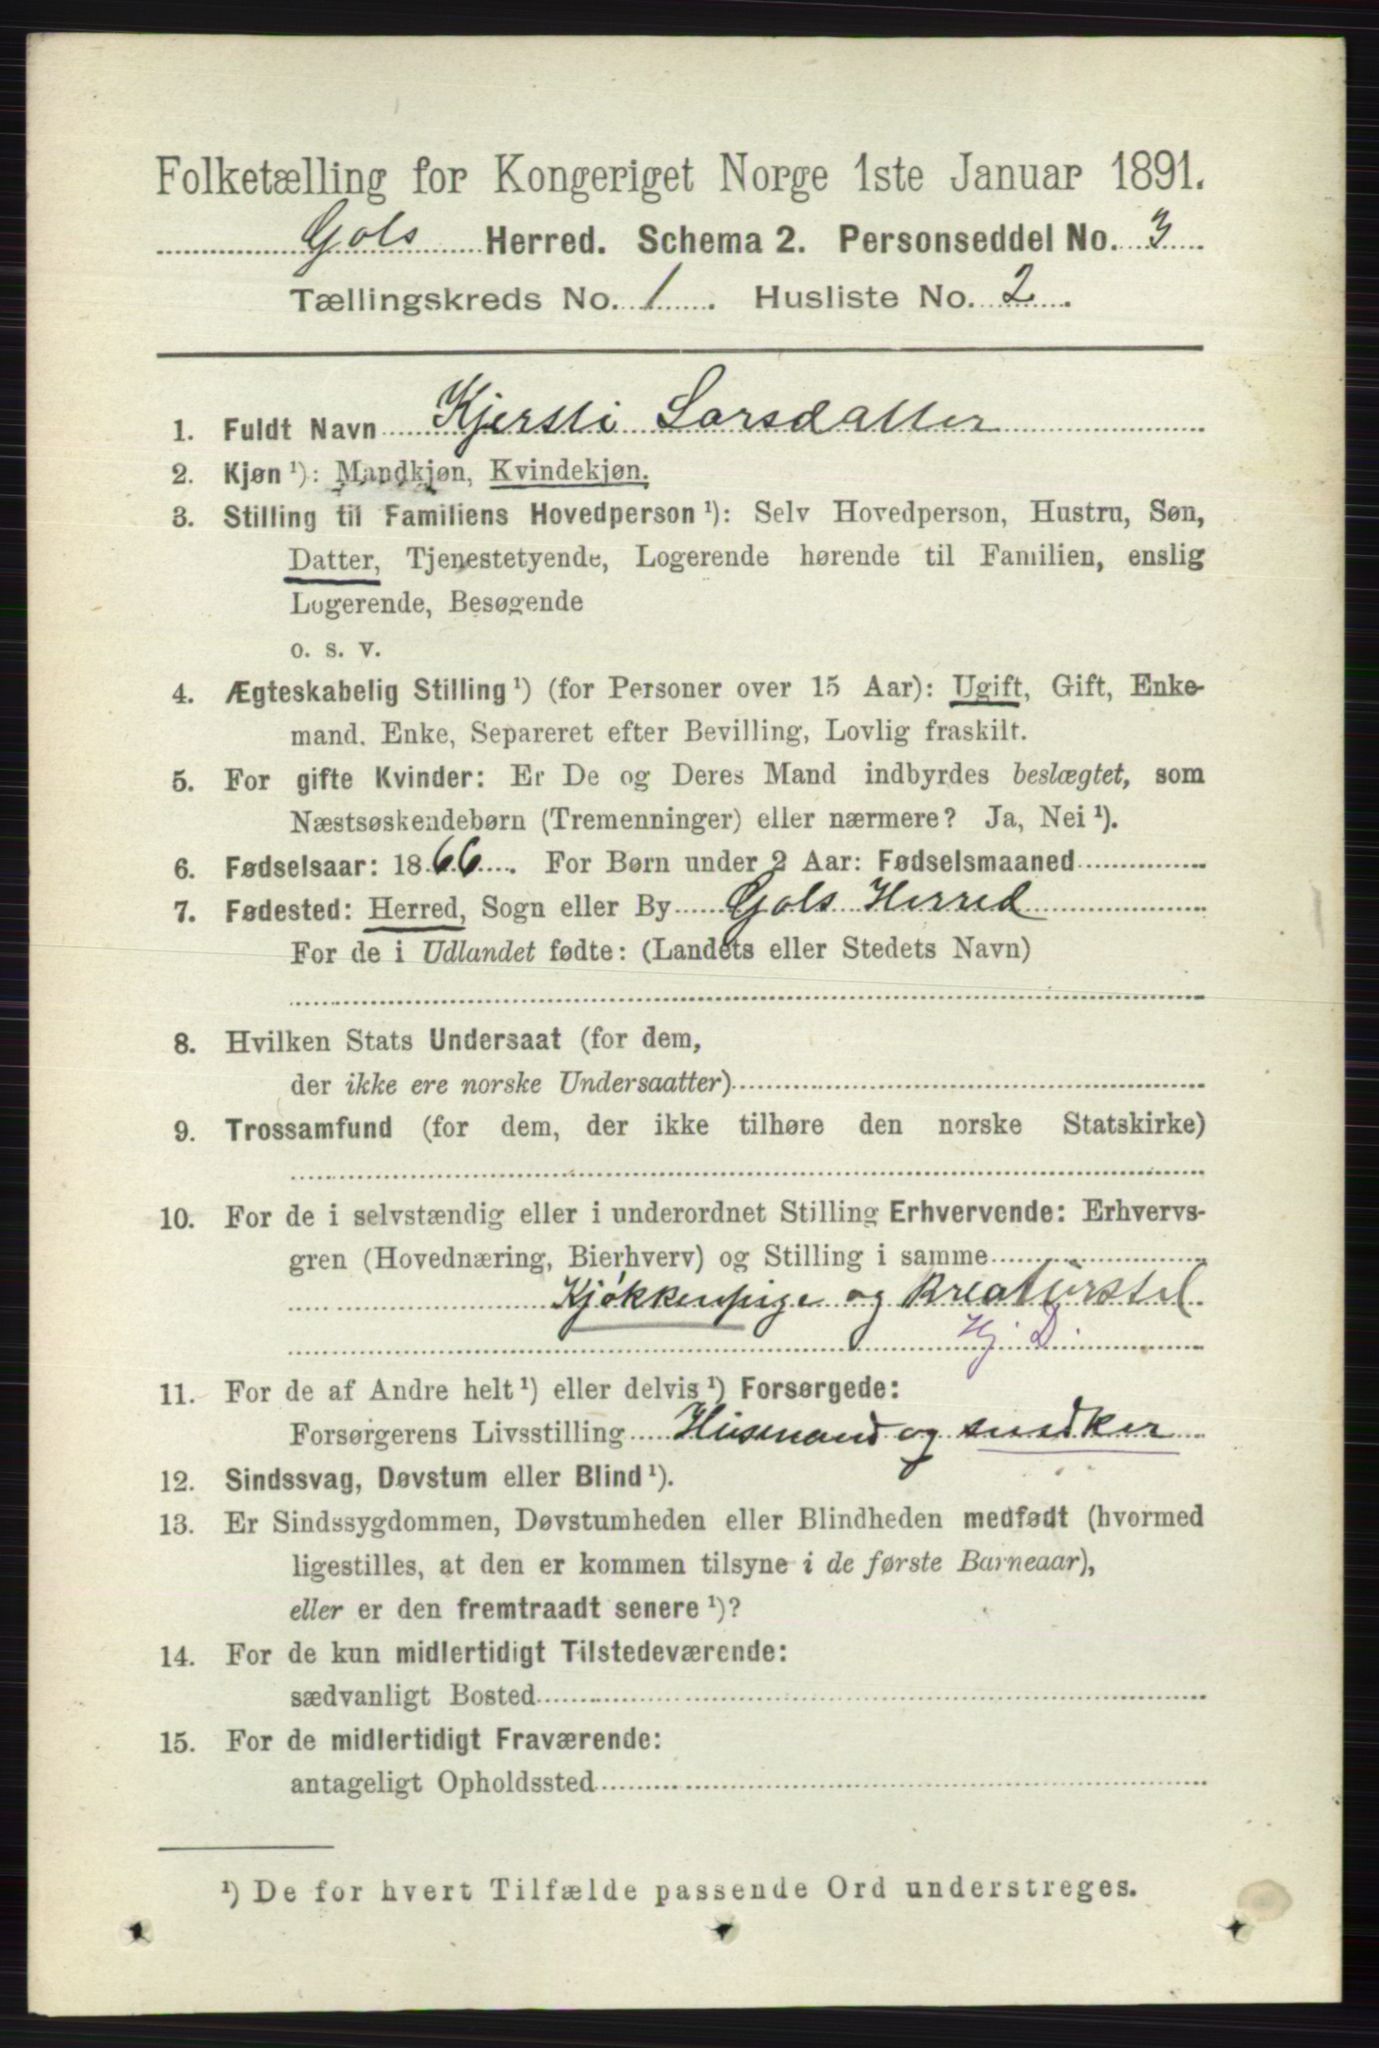 Folketælling for Kongeriget Norge 1ste Januar 1891.
Gols Herred. Schema 2. Personseddel No. 3
Tællingskreds No. 1. Husliste No. 2.
1. Fuldt Navn Kjersti Larsdatter
2. Kjøn ¹): Mandkjøn, Kvindekjøn.
3. Stilling til Familiens Hovedperson ¹): Selv Hovedperson, Hustru, Søn,
Datter, Tjenestetyende, Logerende hørende til Familien, enslig
Logerende, Besøgende
o. s. v.
4. Ægteskabelig Stilling ¹) (for Personer over 15 Aar): Ugift, Gift, Enke-
mand. Enke, Separeret efter Bevilling, Lovlig fraskilt.
5. For gifte Kvinder: Er De og Deres Mand indbyrdes beslægtet, som
Næstsøskendebørn (Tremenninger) eller nærmere? Ja, Nei ¹).
6. Fødselsaar: 1866. For Børn under 2 Aar: Fødselsmaaned
7. Fødested: Herred, Sogn eller By Gols Herred
For de i Udlandet fødte: (Landets eller Stedets Navn)
8. Hvilken Stats Undersaat (for dem,
der ikke ere norske Undersaatter)
9. Trossamfund (for dem, der ikke tilhøre den norske Statskirke)
10. For de i selvstændig eller i underordnet Stilling Erhvervende: Erhvervs-
gren (Hovednæring, Bierhverv) og Stilling i samme
Kjøkkenpige og Kreaturstel
Hj. D.
11. For de af Andre helt ¹) eller delvis ¹) Forsørgede:
Forsørgerens Livsstilling Husmand og snedker
12. Sindssvag, Døvstum eller Blind ¹).
13. Er Sindssygdommen, Døvstumheden eller Blindheden medfødt (hvormed
ligestilles, at den er kommen tilsyne i de første Barneaar),
eller er den fremtraadt senere ¹)?
14. For de kun midlertidigt Tilstedeværende:
sædvanligt Bosted
15. For de midlertidigt Fraværende:
antageligt Opholdssted
¹) De for hvert Tilfælde passende Ord understreges.